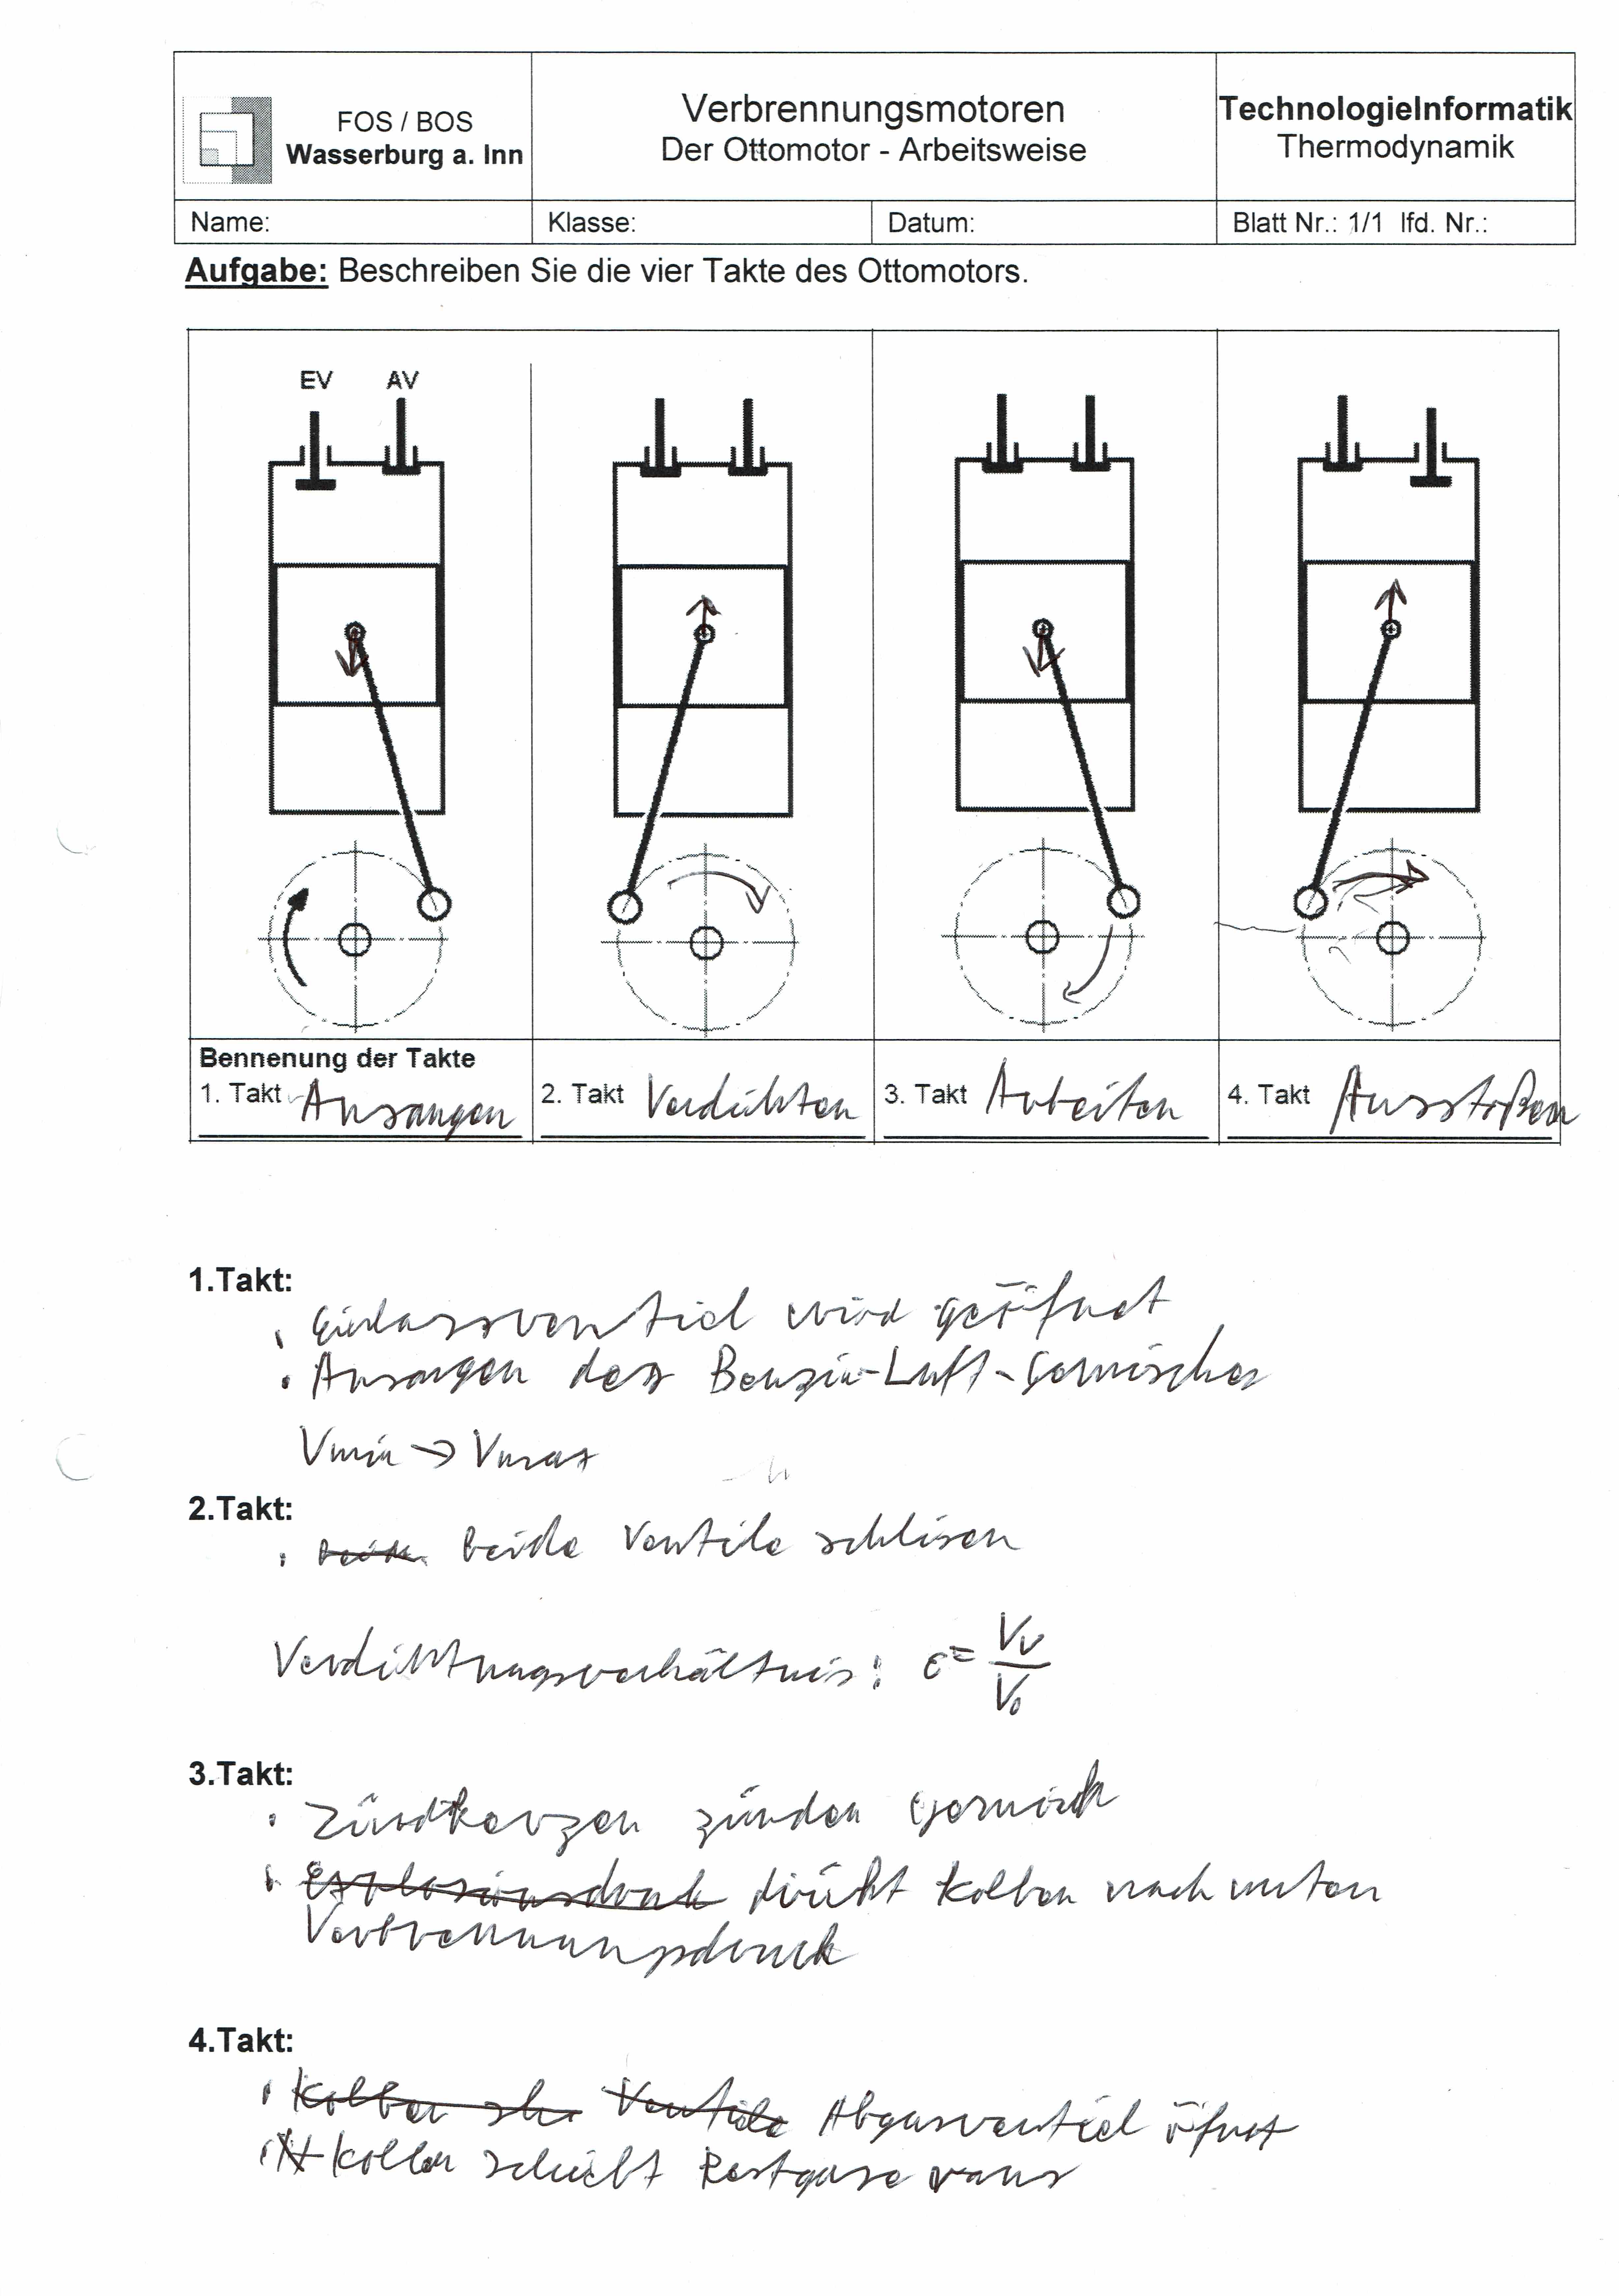 FOS / BOS
Wasserburg a. Inn
Verbrennungsmotoren
Der Ottomotor - Arbeitsweise
TechnologieInformatik
Thermodynamik
Name:
Klasse:
Datum:
Blatt Nr.: 1/1 lfd. Nr.:
Aufgabe: Beschreiben Sie die vier Takte des Ottomotors.
EV AV
Bennenung der Takte
1. Takt Ansaugen
2. Takt Verdichten
3. Takt Arbeiten
4. Takt Ausstoßen
1.Takt:
Einlassventiel wird geöfnet
• Ansaugen des Benzin-Luft-Gemisches
Vmin → Vmax
2.Takt:
• beide Ventile schlisen
Verdichtungsverhältnis: ε = Vv / V0
3.Takt:
• Zündkerzen zünden Gemisch
• Explosionsdruck drückt Kolben nach unten
Verbrennungsdruck
4.Takt:
• Kolben Ventile Abgasventiel öfnet
• Kolben schiebt Restgase raus